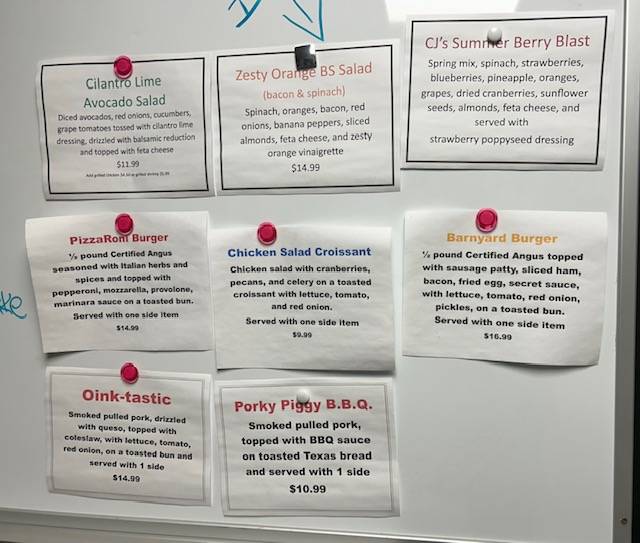 Cilantro Lime
Avocado Salad
Diced avocados, red onions, cucumbers,
grape tomatoes tossed with cilantro lime
dressing, drizzled with balsamic reduction
and topped with feta cheese
$11.99
Zesty Orange BS Salad
(bacon & spinach)
Spinach, oranges, bacon, red
onions, banana peppers, sliced
almonds, feta cheese, and zesty
orange vinaigrette
$14.99
CJ's Summer Berry Blast
Spring mix, spinach, strawberries,
blueberries, pineapple, oranges,
grapes, dried cranberries, sunflower
seeds, almonds, feta cheese, and
served with
strawberry poppyseed dressing
PizzaRoni Burger
⅓ pound Certified Angus
seasoned with Italian herbs and
spices and topped with
pepperoni, mozzarella, provolone,
marinara sauce on a toasted bun.
Served with one side item
$14.99
Chicken Salad Croissant
Chicken salad with cranberries,
pecans, and celery on a toasted
croissant with lettuce, tomato,
and red onion.
Served with one side item
$9.99
Barnyard Burger
⅓ pound Certified Angus topped
with sausage patty, sliced ham,
bacon, fried egg, secret sauce,
with lettuce, tomato, red onion,
pickles, on a toasted bun.
Served with one side item
$16.99
Oink-tastic
Smoked pulled pork, drizzled
with queso, topped with
coleslaw, with lettuce, tomato,
red onion, on a toasted bun and
served with 1 side
$14.99
Porky Piggy B.B.Q.
Smoked pulled pork,
topped with BBQ sauce
on toasted Texas bread
and served with 1 side
$10.99